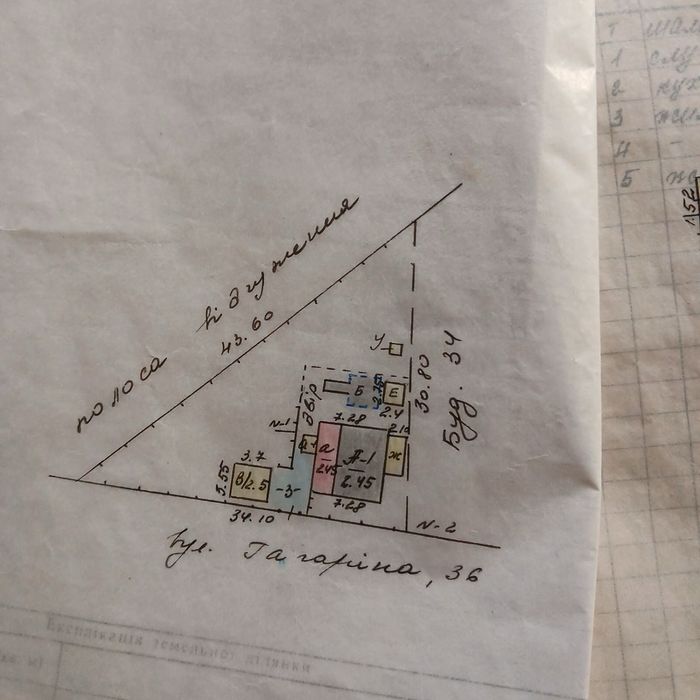 полоса відчуження
43.60
У
Буд. 34
30.80
двір
Б
Е
2.4
7.28
N-1
а
2.45
А-1
2.45
Ж
7.28
3.7
5.55
В/2.5
-3-
34.10
N-2
вул. Гагаріна, 36
Експлікація земельної ділянки
1
2
3
4
5
1.52